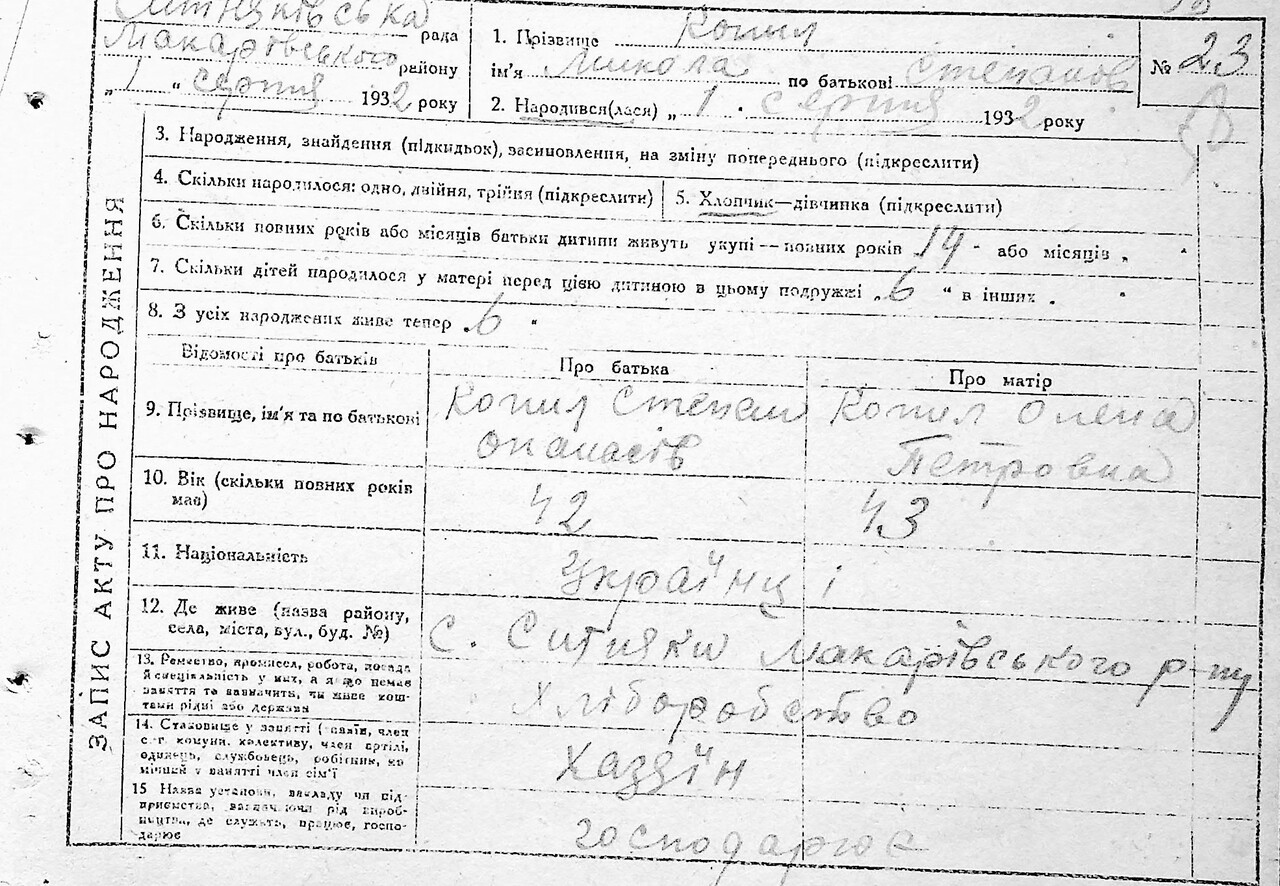 Ситняківська рада
Макарівського району
„ 1 “ серпня 1932 року
1. Прізвище Копил
ім'я Микола по батькові Степанов
2. Народився(лася) „ 1 „ серпня 1932 року
№ 23
ЗАПИС АКТУ ПРО НАРОДЖЕННЯ
3. Народження, знайдення (підкидьок), засиновлення, на зміну попереднього (підкреслити)
4. Скільки народилося: одно, двійня, трійня (підкреслити)
5. Хлопчик—дівчинка (підкреслити)
6. Скільки повних років або місяців батьки дитини живуть укупі — повних років 19 або місяців „ “
7. Скільки дітей народилося у матері перед цією дитиною в цьому подружжі „ 6 “ в інших „ “
8. З усіх народжених живе тепер „ 6 “
Відомості про батьків
Про батька
Про матір
9. Прізвище, ім'я та по батькові
Копил Степан
Опанасів
Копил Олена
Петровна
10. Вік (скільки повних років
має)
42
43
11. Національність
Українці
12. Де живе (назва району,
села, міста, вул., буд. №)
с. Ситняки Макарівського р-ну
13. Ремество, промисел, робота, посада
й спеціяльність у них, а якщо немає
заняття то зазначить, чи живе кош-
тами рідні або держави
Хліборобство
14. Становище у занятті (хазяїн, член
с.-г. комуни, колективу, член артілі,
одинець, службовець, робітник, по
мічний у занятті член сім'ї
Хазяїн
15 Назва установи, закладу чи під-
приємства, зазначаючи рід вироб-
ництва, де служить, працює, госпо-
дарює
господарює